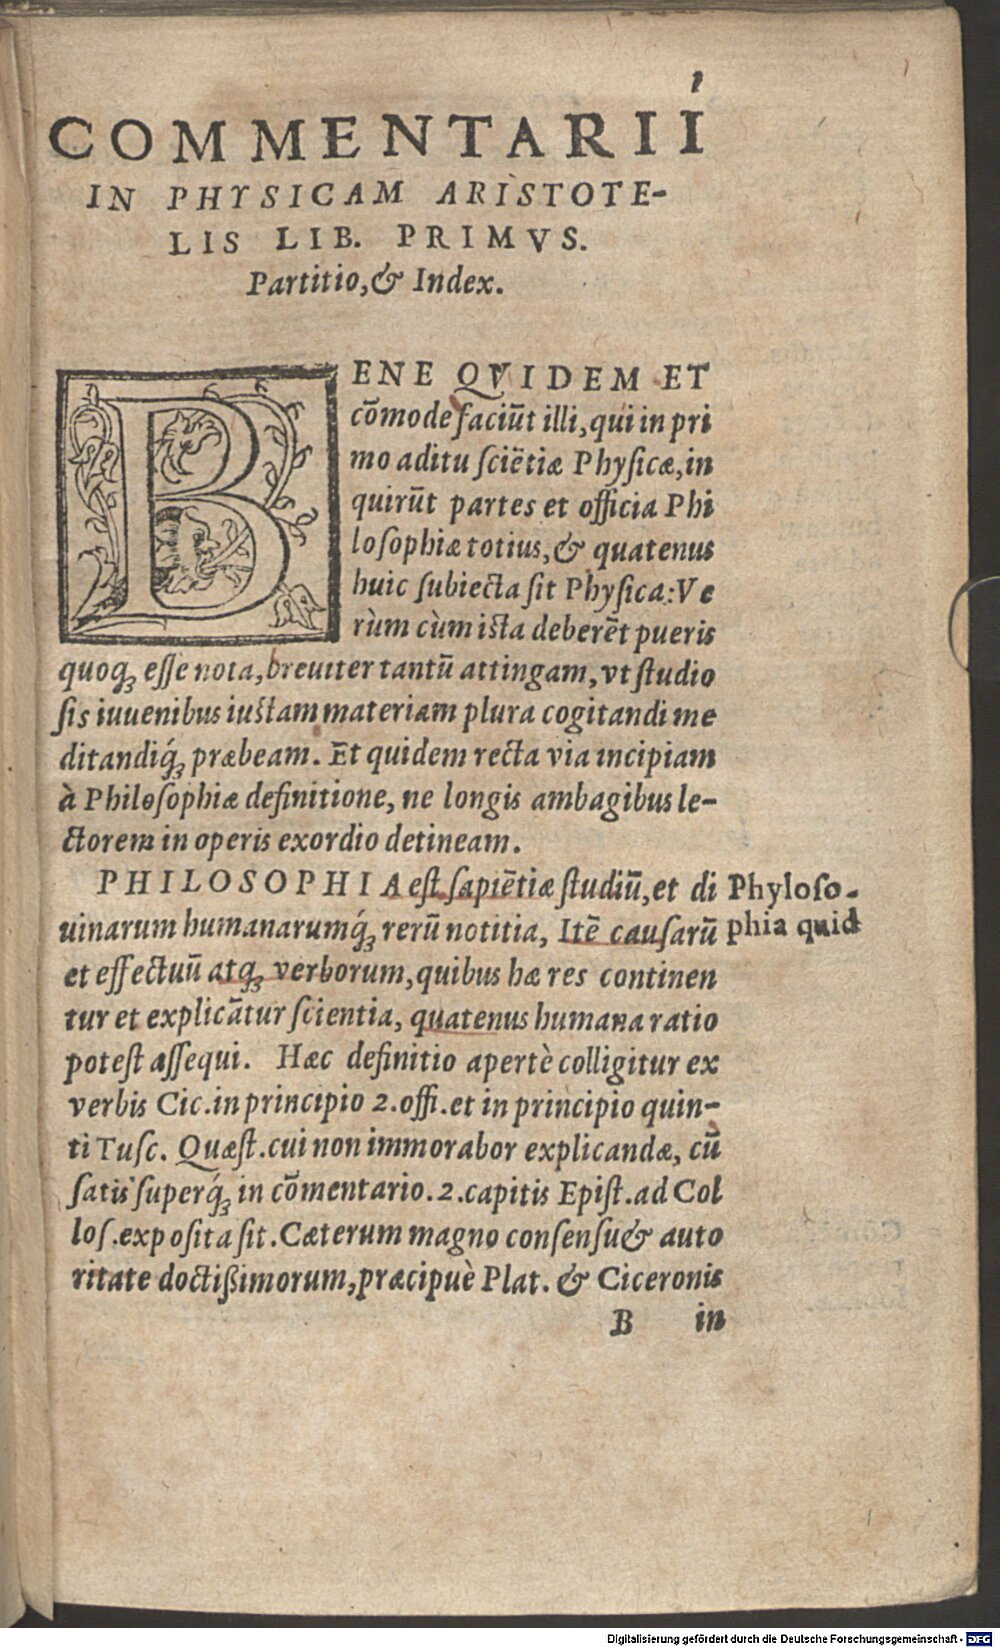 1
COMMENTARII
IN PHYSICAM ARISTOTE-
LIS LIB. PRIMVS.
Partitio, & Index.
BENE QVIDEM ET
cōmode faciūt illi, qui in pri
mo aditu sciētiæ Physicæ, in
quirūt partes et officia Phi
losophiæ totius, & quatenus
huic subiecta sit Physica: Ve
rùm cùm ista deberēt pueris
quoq; esse nota, breuiter tantū attingam, vt studio
sis iuuenibus iustam materiam plura cogitandi me
ditandiq́; præbeam. Et quidem recta via incipiam
à Philosophiæ definitione, ne longis ambagibus le-
ctorem in operis exordio detineam.
PHILOSOPHIA est sapiētiæ studiū, et di
uinarum humanarumq́; rerū notitia, Itē causarū
et effectuū atq; verborum, quibus hæ res continen
tur et explicātur scientia, quatenus humana ratio
potest assequi. Hæc definitio apertè colligitur ex
verbis Cic. in principio 2. offi. et in principio quin-
ti Tusc. Quæst. cui non immorabor explicandæ, cū
satis superq́; in cōmentario. 2. capitis Epist. ad Col
los. exposita sit. Cæterum magno consensu & auto
ritate doctißimorum, præcipuè Plat. & Ciceronis
B in
Phyloso-
phia quid
Digitalisierung gefördert durch die Deutsche Forschungsgemeinschaft - DFG